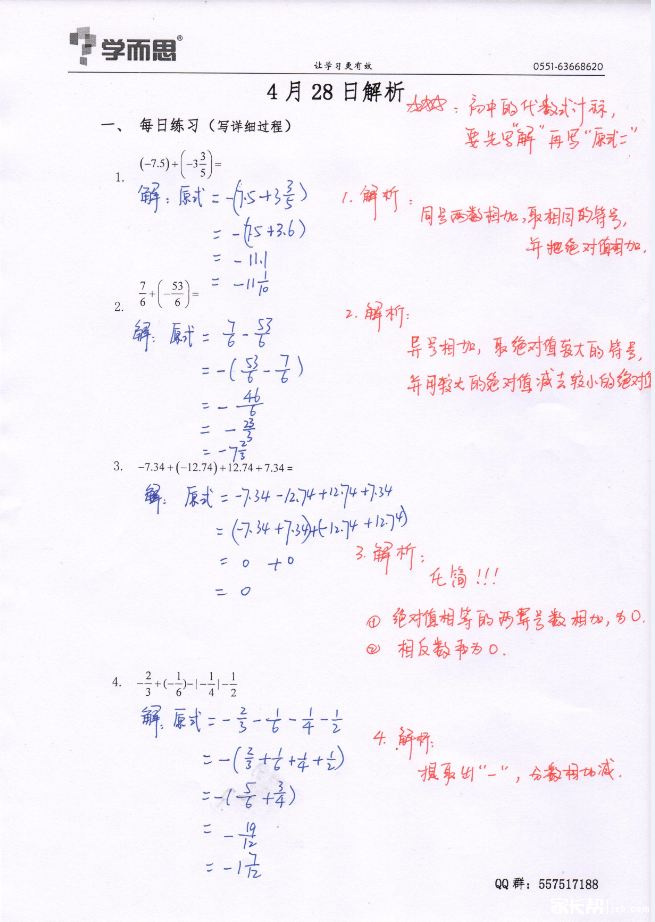 学而思®
让学习更有效
0551-63668620
4月28日解析
☆☆☆：初中的代数式计算，
要先写“解”再写“原式=”
一、 每日练习（写详细过程）
1. (-7.5)+(-3 3/5)=
解：原式=-(7.5+3 3/5)
=-(7.5+3.6)
=-11.1
=-11 1/10
1.解析：
同号两数相加，取相同的符号，
并把绝对值相加.
2. 7/6+(-53/6)=
解：原式= 7/6-53/6
=-(53/6-7/6)
=-46/6
=-23/3
=-7 2/3
2.解析：
异号相加，取绝对值较大的符号，
并用较大的绝对值减去较小的绝对值
3. -7.34+(-12.74)+12.74+7.34=
解：原式=-7.34-12.74+12.74+7.34
=(-7.34+7.34)+(-12.74+12.74)
=0+0
=0
3.解析：
化简!!!
① 绝对值相等的两异号数相加，为0.
② 相反数和为0.
4. -2/3+(-1/6)-|-1/4|-1/2
解：原式=-2/3-1/6-1/4-1/2
=-(2/3+1/6+1/4+1/2)
=-(5/6+3/4)
=-19/12
=-1 7/12
4.解析：
提取出“-”，分数相加减.
QQ群：557517188
家长帮